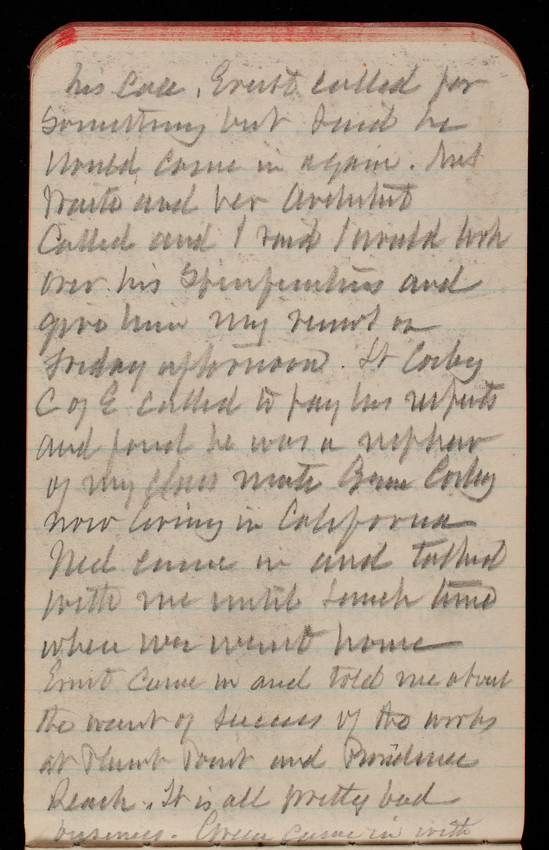 his case. Ernst called for
something but said he
would come in again. Mrs
Waite and her Architect
Called and I said I would look
over his Specifications and
give him my report on
Friday afternoon. Lt Cosby
C of E called to pay his respects
and found he was a nephew
of my class mate Cosby
now living in California
Ned came in and talked
with me until lunch time
when we went home
Ernst came in and told me about
the want of success of the works
at Plumb Point and Providence
Reach. It is all pretty bad
business. Green came in with